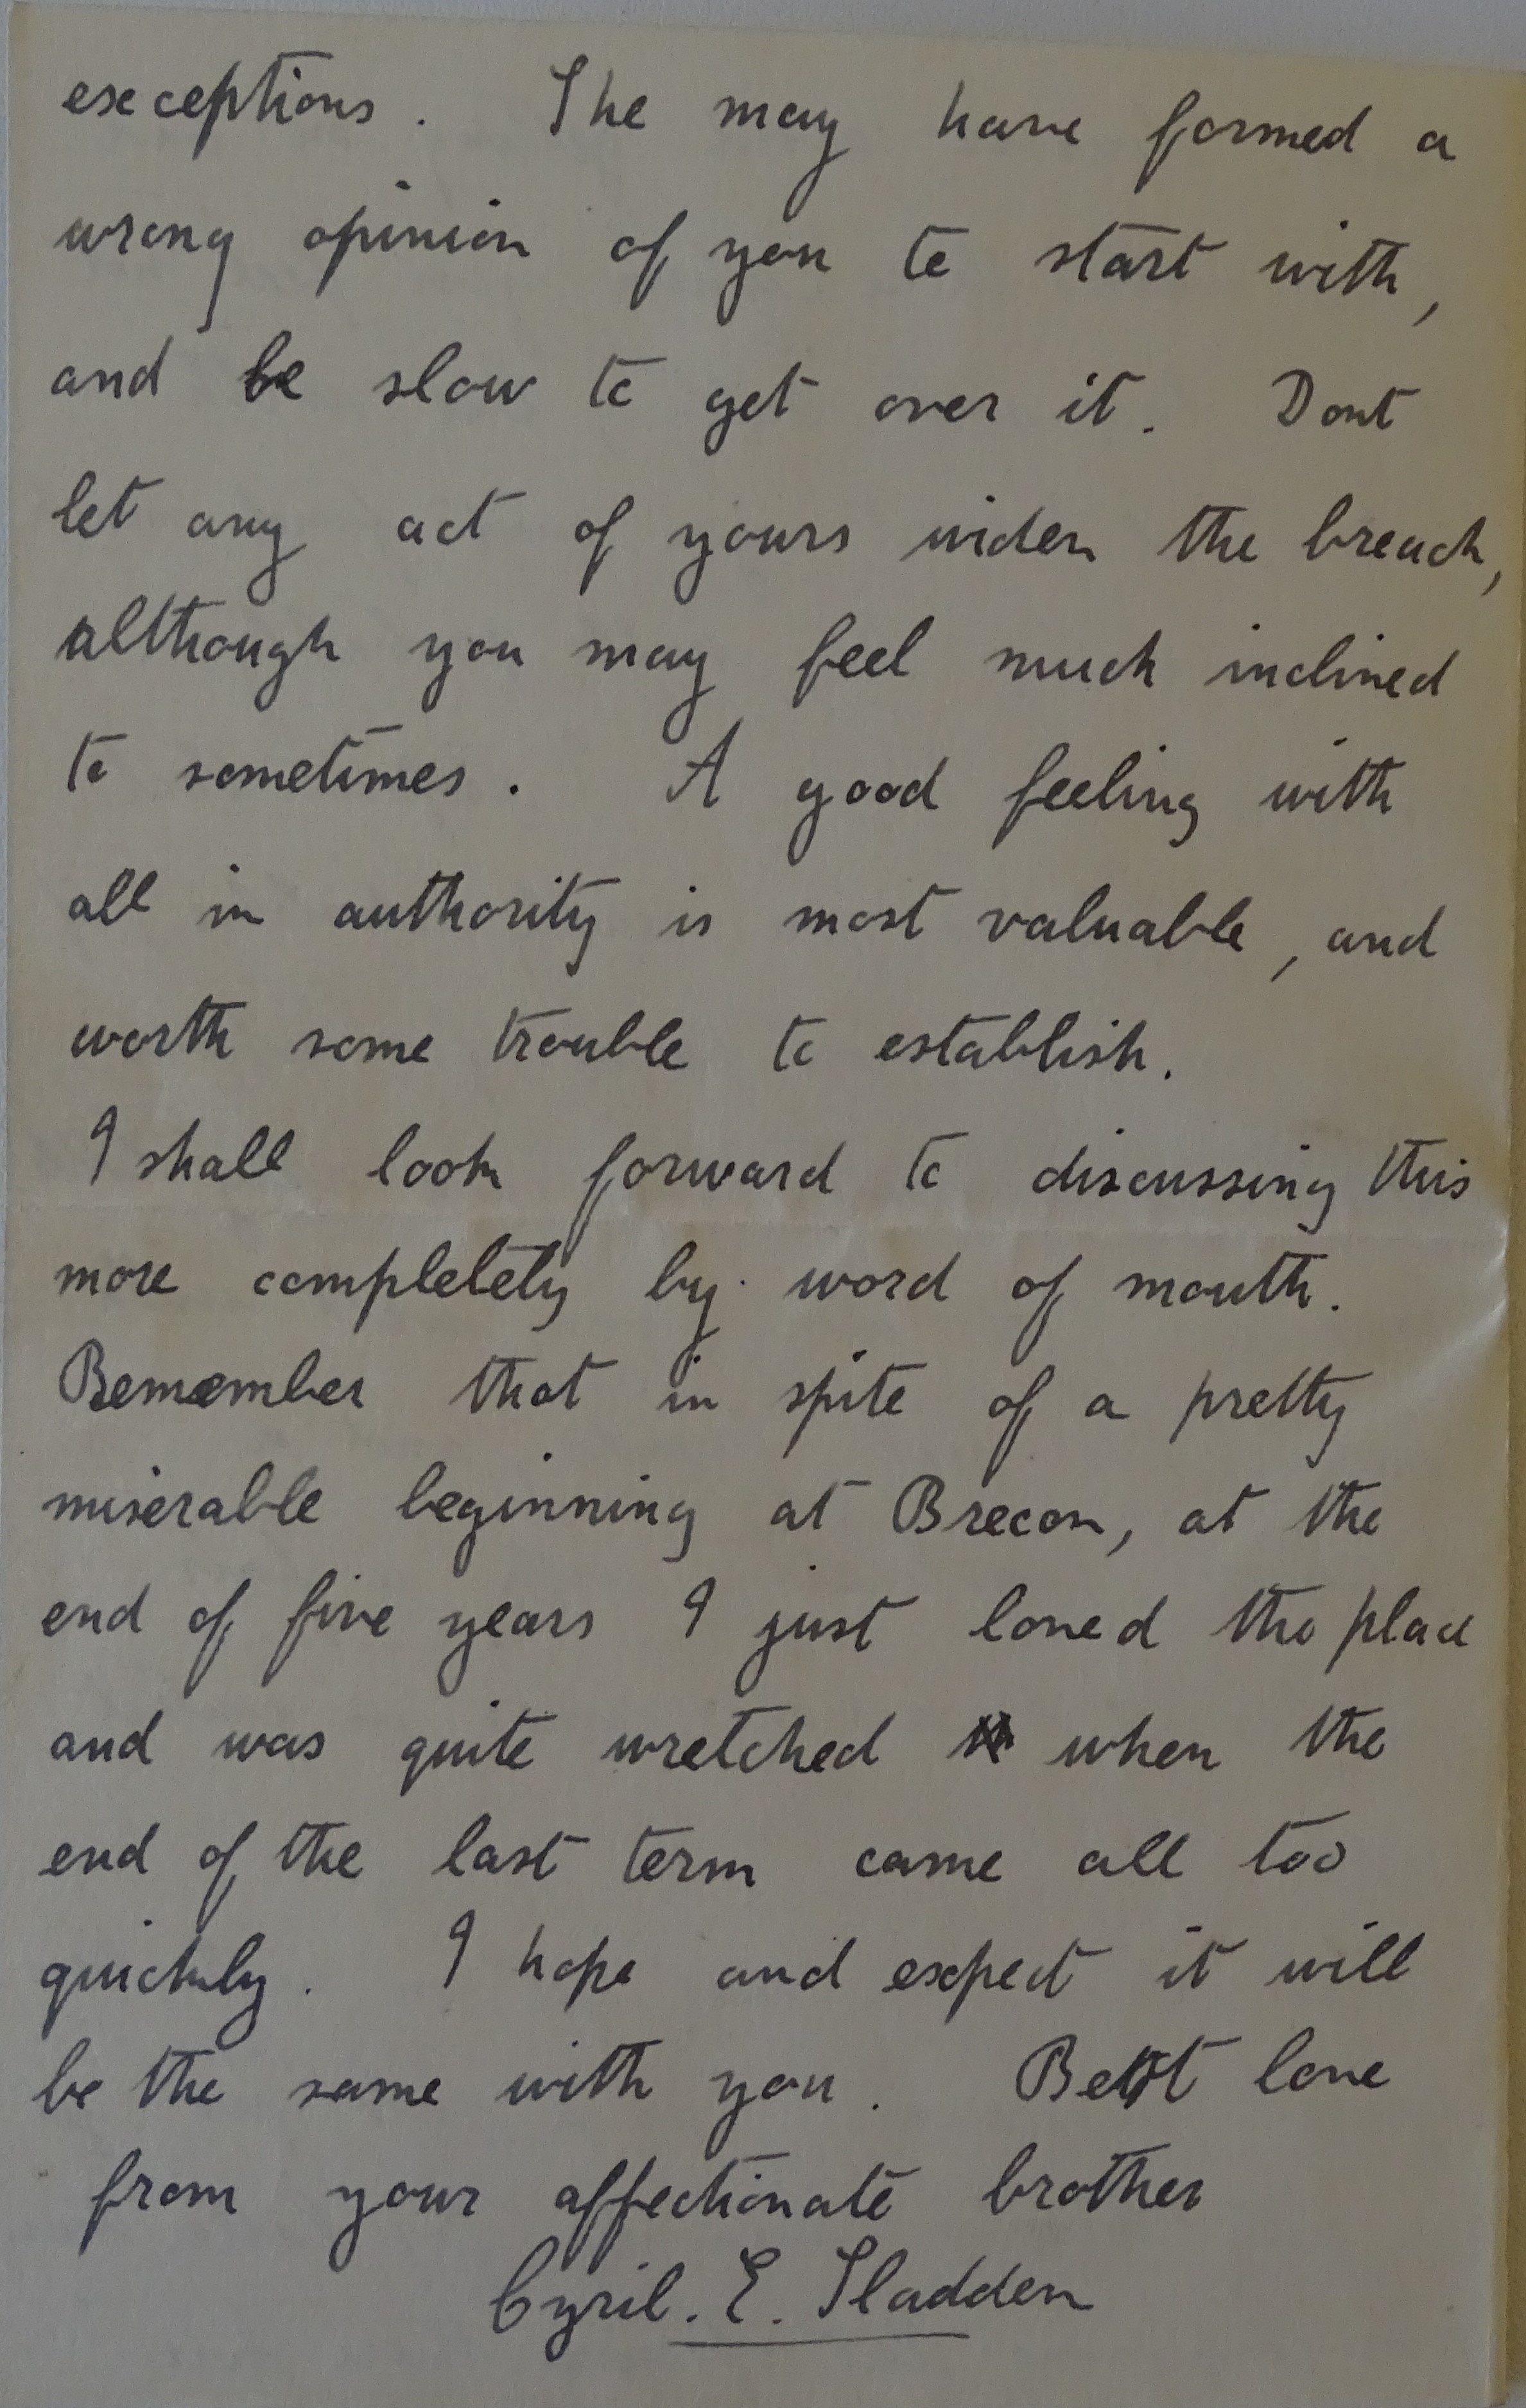 exceptions. She may have formed a
wrong opinion of you to start with,
and be slow to get over it. Dont
let any act of yours widen the breach,
although you may feel much inclined
to sometimes. A good feeling with
all in authority is most valuable, and
worth some trouble to establish.
I shall look forward to discussing this
more completely by word of mouth.
Remember that in spite of a pretty
miserable beginning at Brecon, at the
end of five years I just loved the place
and was quite wretched when the
end of the last term came all too
quickly. I hope and expect it will
be the same with you. Best love
from your affectionate brother
Cyril. E. Sladden